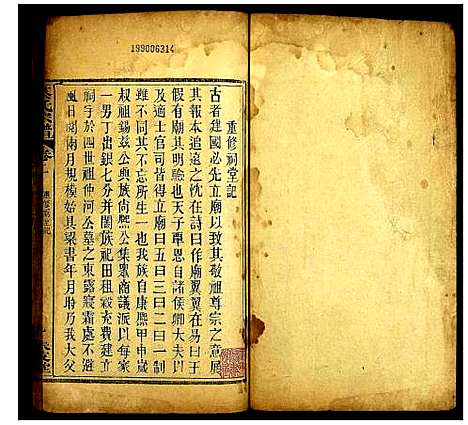 199006314
重修祠堂記
古者建國必先立廟以致其敬祖尊宗之意展
其報本追遠之忱在詩曰作廟翼翼在易曰王
假有廟其明驗也天子覃恩自諸侯卿大夫以
及適士官司皆得立廟曰五曰三曰二曰一制
雖不同其不忘所生一也我族自康熙甲申歲
叔祖錫茲公與族尚熙公集眾商議派以每家
一男丁出銀七分并闔族祀田租穀充費建立
祠宇於四世祖仲河公墓之東露寢霜處不避
風日閱兩月規模始具梁書年月時乃我大父
重修祠堂記